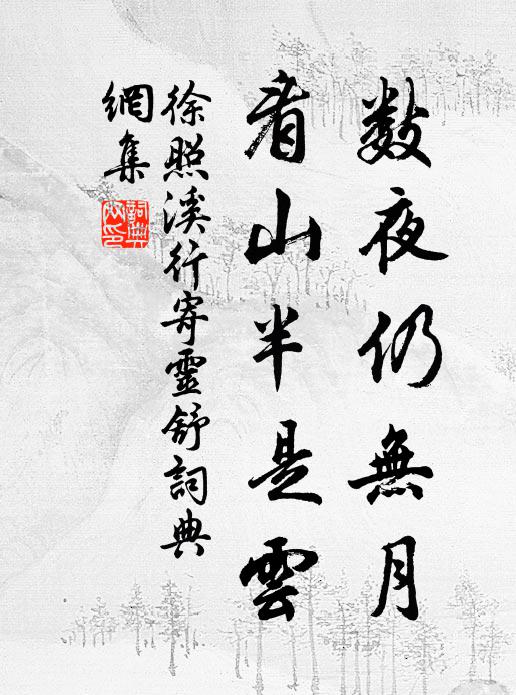 數夜仍無月
看山半是雲
徐照溪行寄靈舒詞典
網集
詞典網印